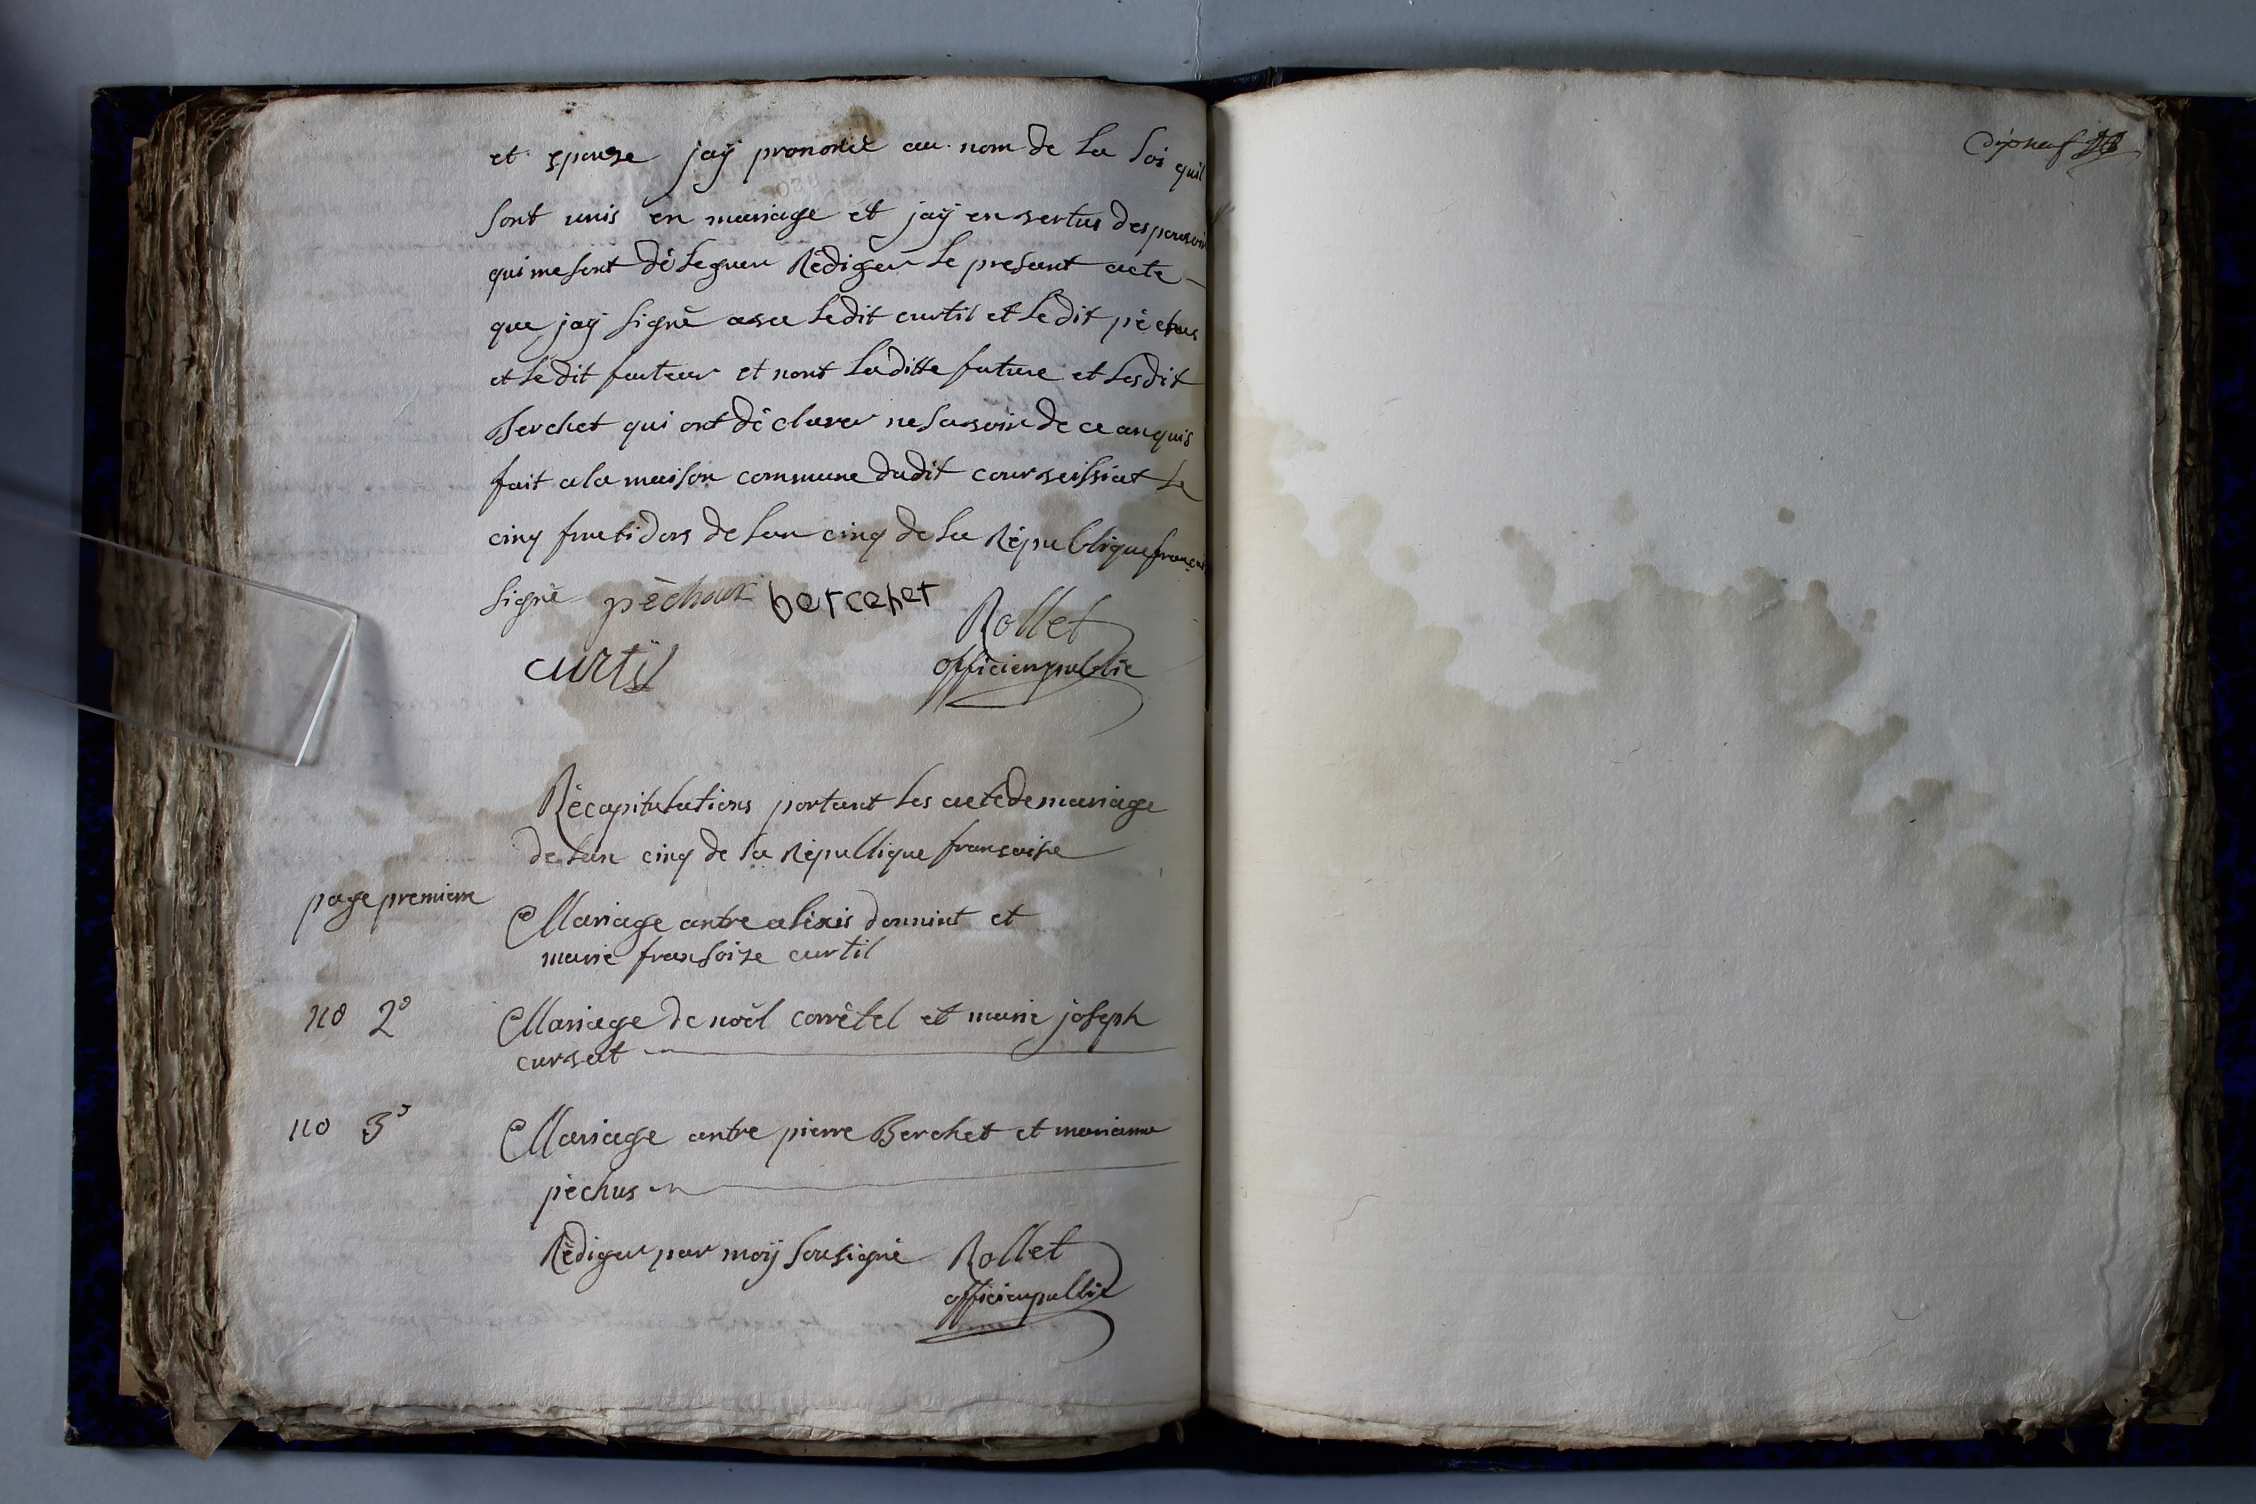 et epouse jaÿ prononcé au nom de la loi quil
sont unis en mariage et jaÿ en vertus des pouvoir
qui me sont dèleguer Rèdiger le present acte
que jaÿ signè avec ledit curtil et ledit pèchus
et le dit et nont laditte future et lesdit
Berchet qui ont dèclarer ne savoir de ce anquis
fait a la maison commune dudit courveissiat le
cinq frutidors de lan cinq de la Rèpublique françois
signè pèchux bercehet Rollet
curtÿl officier public
Rècapitulations portant les acte de mariage
de lan cinq de la Rèpullique francoise
page premiere Mariage antre alèxis donnint et
marie fransoize curtil
no 2o Mariage de noèl corrêtel et marie joseph
curvat
no 3o Mariage antre pierre Berchet et marianne
pèchus
Rèdiger par moÿ sousignè Rollet
officier pullic
dixneuf